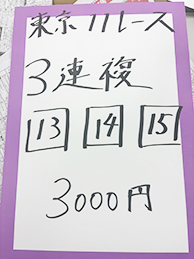 東京11レース
3連複
13 14 15
3000円